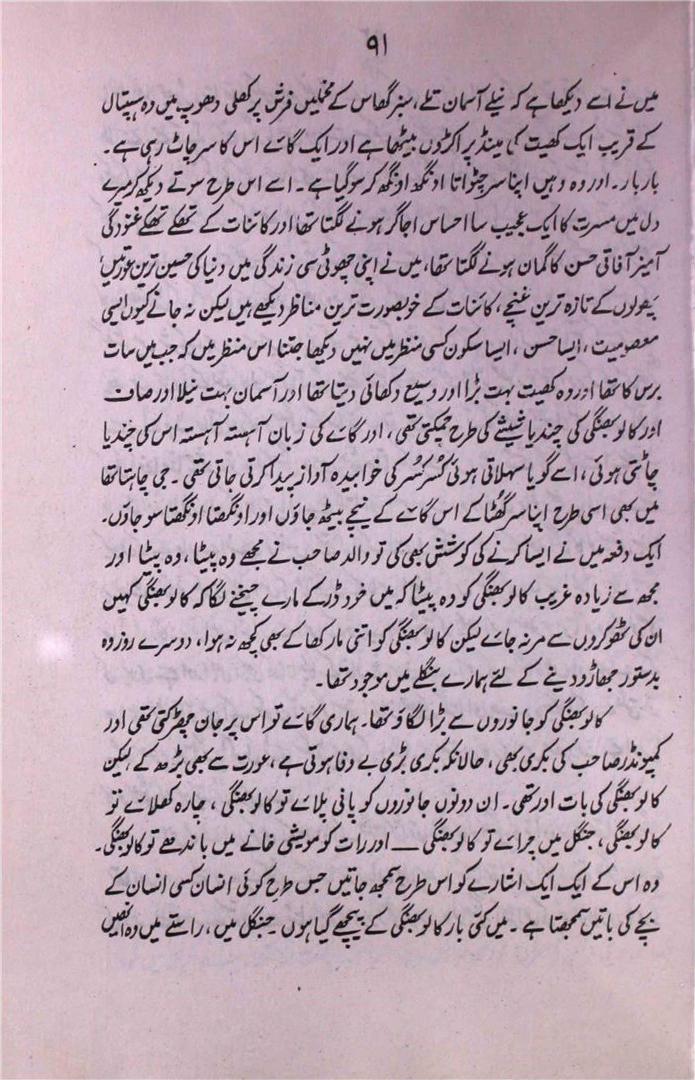 ۹۱
میں نے اسے دیکھا ہے کہ نیلے آسمان تلے، سبز گھاس کے مخملیں فرش پر کھلی دھوپ میں وہ ہسپتال
کے قریب ایک کھیت کی مینڈ پر اکڑوں بیٹھا ہے اور ایک گائے اس کا سر چاٹ رہی ہے۔
بار بار۔ اور وہ وہیں اپنا سر چٹواتا اونگھ اونگھ کر سو گیا ہے۔ اسے اس طرح سوتے دیکھ کر میرے
دل میں مسرت کا ایک عجیب سا احساس اجاگر ہونے لگتا تھا اور کائنات کے تھکے تھکے غنودگی
آمیز آفاقی حسن کا گمان ہونے لگتا تھا، میں نے اپنی چھوٹی سی زندگی میں دنیا کی حسین ترین عورتیں
پھولوں کے تازہ ترین غنچے، کائنات کے خوبصورت ترین مناظر دیکھے ہیں لیکن نہ جانے کیوں ایسی
معصومیت، ایسا حسن، ایسا سکون کسی منظر میں نہیں دیکھا جتنا اس منظر میں کہ جب میں سات
برس کا تھا اور وہ کھیت بہت بڑا اور وسیع دکھائی دیتا تھا اور آسمان بہت نیلا اور صاف
اور کالو بھنگی کی چندیا شیشے کی طرح چمکتی تھی، اور گائے کی زبان آہستہ آہستہ اس کی چندیا
چاٹتی ہوئی، اسے گویا سہلاتی ہوئی کُسر کُسر کی خوابیدہ آواز پیدا کرتی جاتی تھی۔ جی چاہتا تھا
میں بھی اسی طرح اپنا سر گھٹا کے اس گائے کے نیچے بیٹھ جاؤں اور اونگھتا اونگھتا سو جاؤں۔
ایک دفعہ میں نے ایسا کرنے کی کوشش بھی کی تو والد صاحب نے مجھے وہ پیٹا، وہ پیٹا اور
مجھ سے زیادہ غریب کالو بھنگی کو وہ پیٹا کہ میں خود ڈر کے مارے چیخنے لگا کہ کالو بھنگی کہیں
ان کی ٹھوکروں سے مر نہ جائے لیکن کالو بھنگی کو اتنی مار کھا کے بھی کچھ نہ ہوا، دوسرے روز وہ
بدستور جھاڑو دینے کے لئے ہمارے بنگلے میں موجود تھا۔
کالو بھنگی کو جانوروں سے بڑا لگاؤ تھا۔ ہماری گائے تو اس پر جان چھڑکتی تھی اور
کمپونڈر صاحب کی بکری بھی، حالانکہ بکری بڑی بے وفا ہوتی ہے، عورت سے بھی بڑھ کے لیکن
کالو بھنگی کی بات اور تھی۔ ان دونوں جانوروں کو پانی پلائے تو کالو بھنگی، چارہ کھلائے تو
کالو بھنگی، جنگل میں چرائے تو کالو بھنگی — اور رات کو مویشی خانے میں باندھے تو کالو بھنگی۔
وہ اس کے ایک ایک اشارے کو اس طرح سمجھ جاتیں جس طرح کوئی انسان کسی انسان کے
بچے کی باتیں سمجھتا ہے۔ میں کئی بار کالو بھنگی کے پیچھے گیا ہوں جنگل میں، راستے میں وہ انھیں